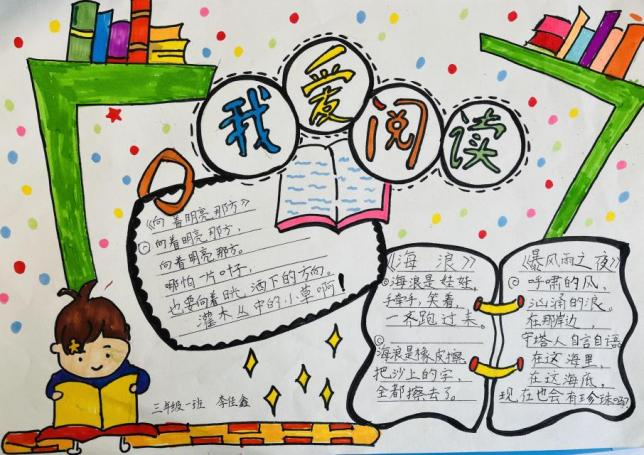 我爱阅读
《向着明亮那方》
向着明亮那方，
向着明亮那方。
哪怕一片叶子，
也要向着日光洒下的方向。
灌木丛中的小草啊！
《海浪》
海浪是娃娃，
手牵手，笑着，
一齐跑过来。
海浪是橡皮擦，
把沙上的字，
全都擦去了。
《暴风雨之夜》
呼啸的风，
汹涌的浪。
在那岸边，
守塔人自言自语，
在这海里，
在这海底，
现在也会有珍珠吗？
三年级一班 李佳鑫